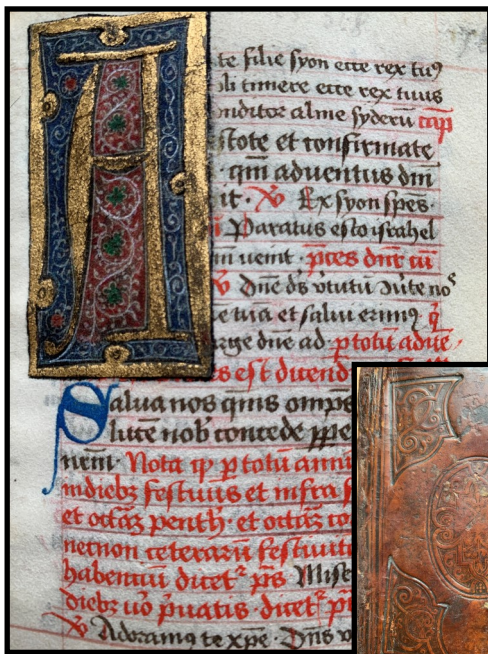 te filie syon ecce rex tuꝰ
li timere ecce rex tuus
nditor alme syderū cap
tote et confirmate
qm̄ adventus dm̄
it. ℣ Ex syon spēs.
Paratus esto israhel
m ueint. p̄ces dn̄r cū
℣ Dn̄e ds̄ v̄tutū
tua et salui erimꝰ
rge dn̄e ad. p totū adue
es est dicend
Salua nos qm̄s omps
lucē nob concede ppe
nem. Nota qp p totū anni
indiebꝫ festiuis et infra
et octaȝ penth. et octaȝ co
necnon ceterarū festiuit
habenciū dicetr p̄s Mise
diebꝫ uō p̄uatis. dicetr
℣ Adoramꝰ te xp̄e. Dn̄s